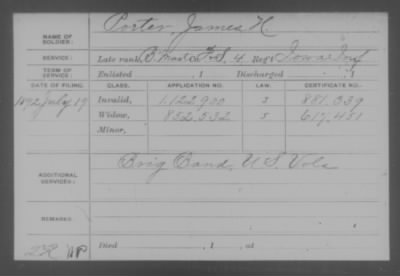 NAME OF SOLDIER: Porter, James H
SERVICE: Late rank, Co. F&S, 4 Reg't Iowa Inf
TERM OF SERVICE: Enlisted , 1 Discharged , 1
DATE OF FILING. CLASS. APPLICATION NO. LAW. CERTIFICATE NO.
1892 July 19 Invalid, 1.122.900 881.039
Widow, 852.532 617.481
Minor,
ADDITIONAL SERVICES: Brig Band, U.S. Vols
REMARKS:
Died , 1 , at